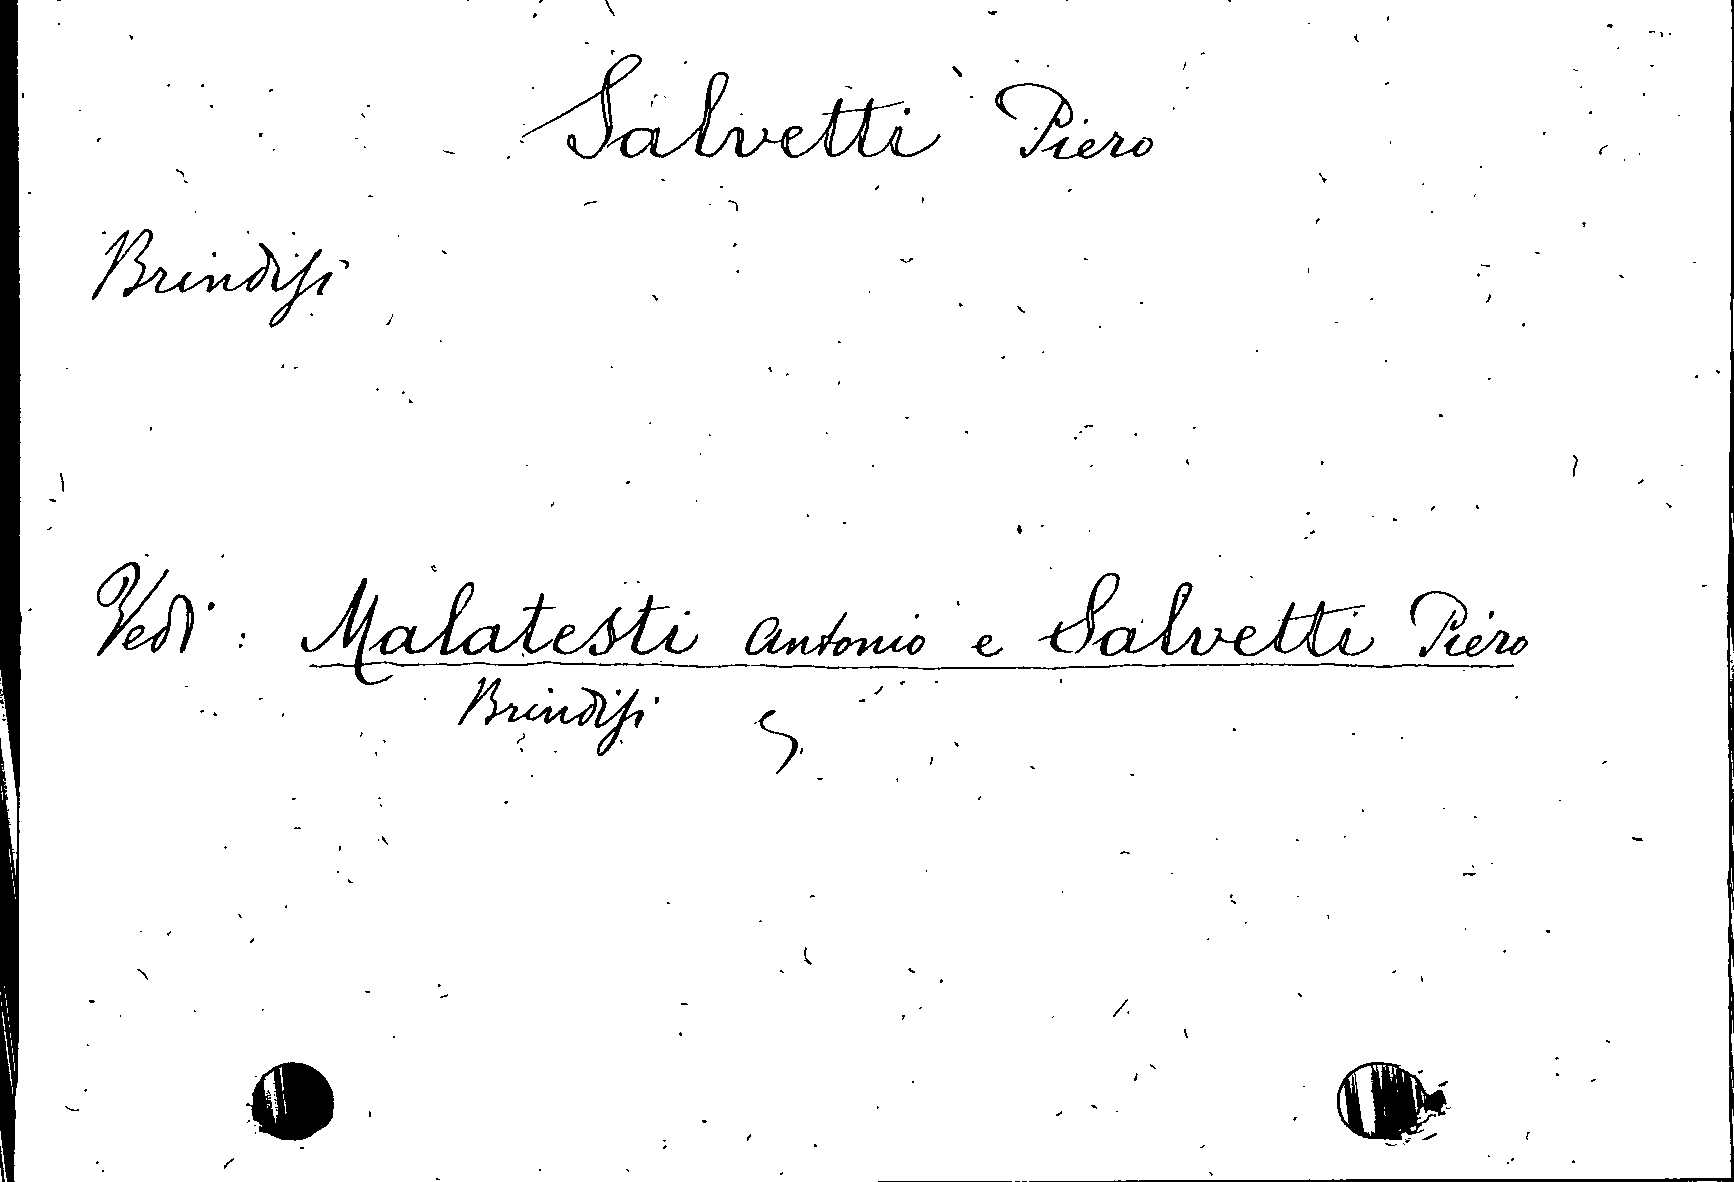 Salvetti Piero
Brindisi
Vedi: Malatesti Antonio e Salvetti Piero
Brindisi